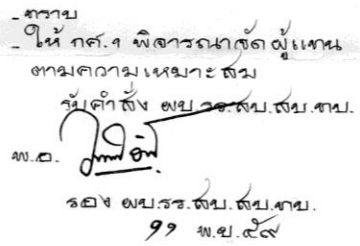 - ทราบ
- ให้ กศ.ฯ พิจารณาจัด ผู้แทน
ตามความเหมาะสม
รับคำสั่ง ผบ.รร.สบ.สบ.ทบ.
พ.อ.
รอง ผบ.รร.สบ.สบ.ทบ.
๑๑ พ.ย. ๕๙